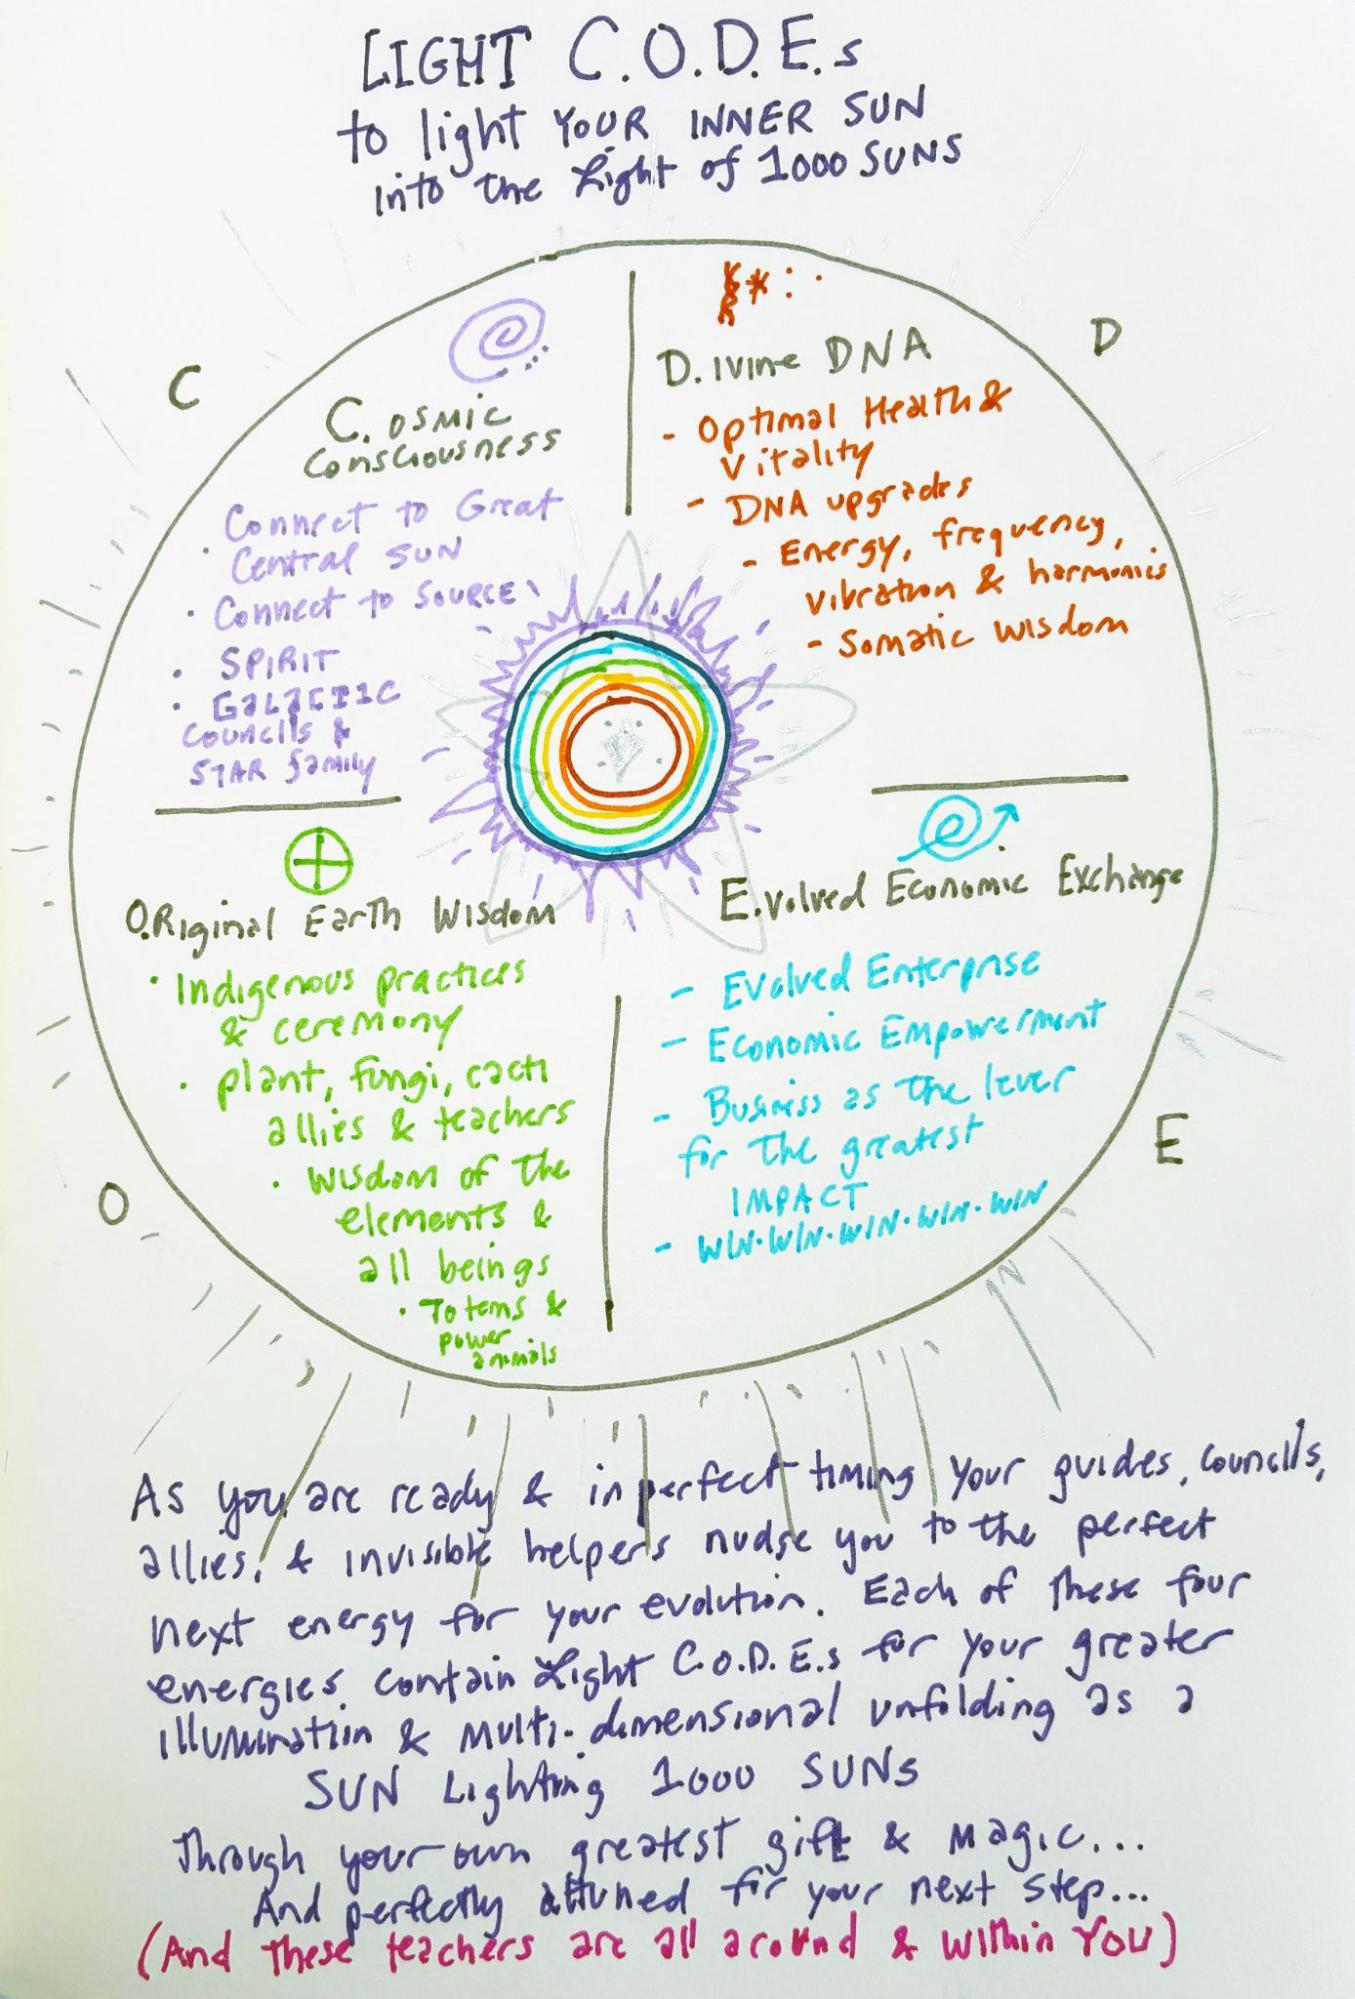 LIGHT C.O.D.E.s
to light YOUR INNER SUN
into the Light of 1000 SUNS
C
C. OSMIC
CONSCIOUSNESS
· Connect to Great
Central SUN
· Connect to SOURCE
· SPIRIT
· GALACTIC
COUNCILS &
STAR family
D
D. IVINE DNA
- Optimal Health &
Vitality
- DNA upgrades
- Energy, frequency,
vibration & harmonics
- Somatic WISDOM
O
O.Riginal Earth Wisdom
· Indigenous practices
& ceremony
· plant, fungi, cacti
allies & teachers
· WISDOM of the
elements &
all beings
· Totems &
power
animals
E
E.volved Economic Exchange
- Evolved Enterprise
- Economic Empowerment
- Business as the lever
for the greatest
IMPACT
- WIN·WIN·WIN·WIN·WIN
As you are ready & in perfect timing your guides, councils,
allies, & invisible helpers nudge you to the perfect
next energy for your evolution. Each of these four
energies contain Light C.O.D.E.s for your greater
illumination & multi-dimensional unfolding as a
SUN Lighting 1000 SUNs
Through your own greatest gift & magic...
And perfectly attuned for your next step...
(And these teachers are all around & within YOU)